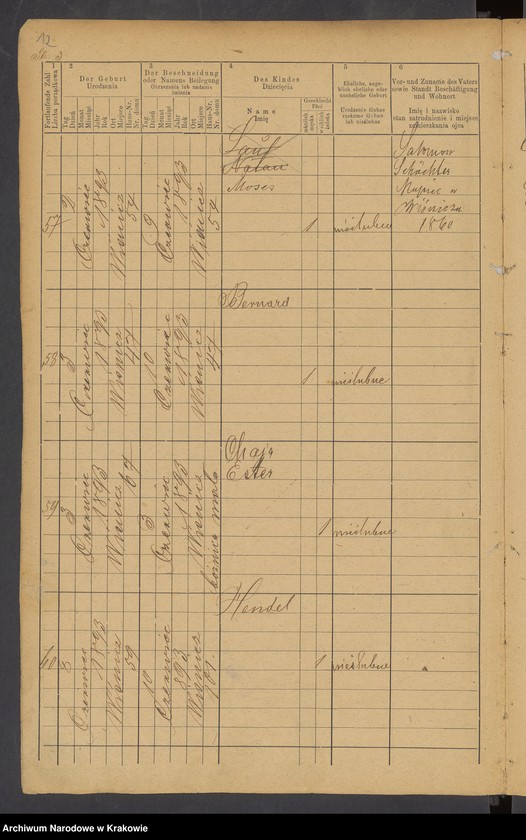 12
1
2
3
4
5
6
Fortlaufende Zahl
Liczba porządkowa
Der Geburt
Urodzenia
Tag
Dzień
Monat
Miesiąc
Jahr
Rok
Ort
Miejsce
Haus-Nr.
Nr. domu
Der Beschneidung
oder Namens Beilegung
Obrzezania lub nadania
imienia
Tag
Dzień
Monat
Miesiąc
Jahr
Rok
Ort
Miejsce
Haus-Nr.
Nr. domu
Des Kindes
Dziecięcia
Name
Imię
Geschlecht
Płeć
männlich
męska
weiblich
żeńska
Eheliche, ange-
blich eheliche oder
uneheliche Geburt
Urodzenie ślubne
rzekomo ślubne
lub nieślubne
Vor- und Zuname des Vaters
sowie Standt Beschäftigung
und Wohnort
Imię i nazwisko
stan zatrudnienie i miejsce
zamieszkania ojca
57
2
Czerwiec
1893
Wiśnicz
54
9
Czerwiec
1893
Wiśnicz
54
Natan
Moses
1
nieślubne
Salomon
Schächter
Kupiec w
Wiśniczu
1860
58
3
Czerwiec
1893
Wiśnicz
47
10
Czerwiec
1893
Wiśnicz
47
Bernard
1
nieślubne
59
3
Czerwiec
1893
Wiśnicz
67
3
Czerwiec
1893
Wiśnicz
Chaja
Ester
1
nieślubne
60
Czerwiec
1893
Wiśnicz
59
10
Czerwiec
1893
Wiśnicz
Hendel
1
nieślubne
Archiwum Narodowe w Krakowie